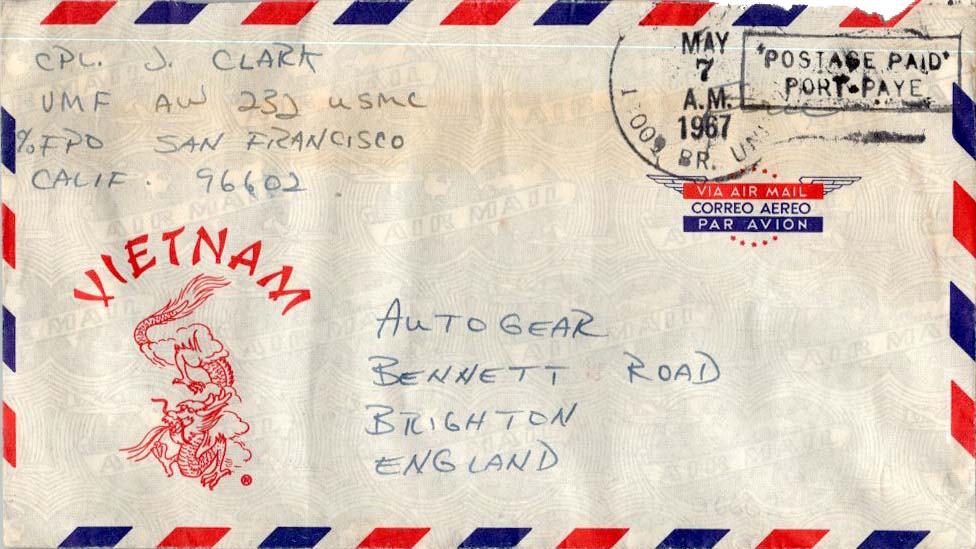 CPL. J. CLARK
VMF AW 232 USMC
% FPO SAN FRANCISCO
CALIF. 96602
MAY
7
A.M.
1967
BR.
"POSTAGE PAID"
PORT-PAYE
VIA AIR MAIL
CORREO AEREO
PAR AVION
VIETNAM
®
AUTOGEAR
BENNETT ROAD
BRIGHTON
ENGLAND